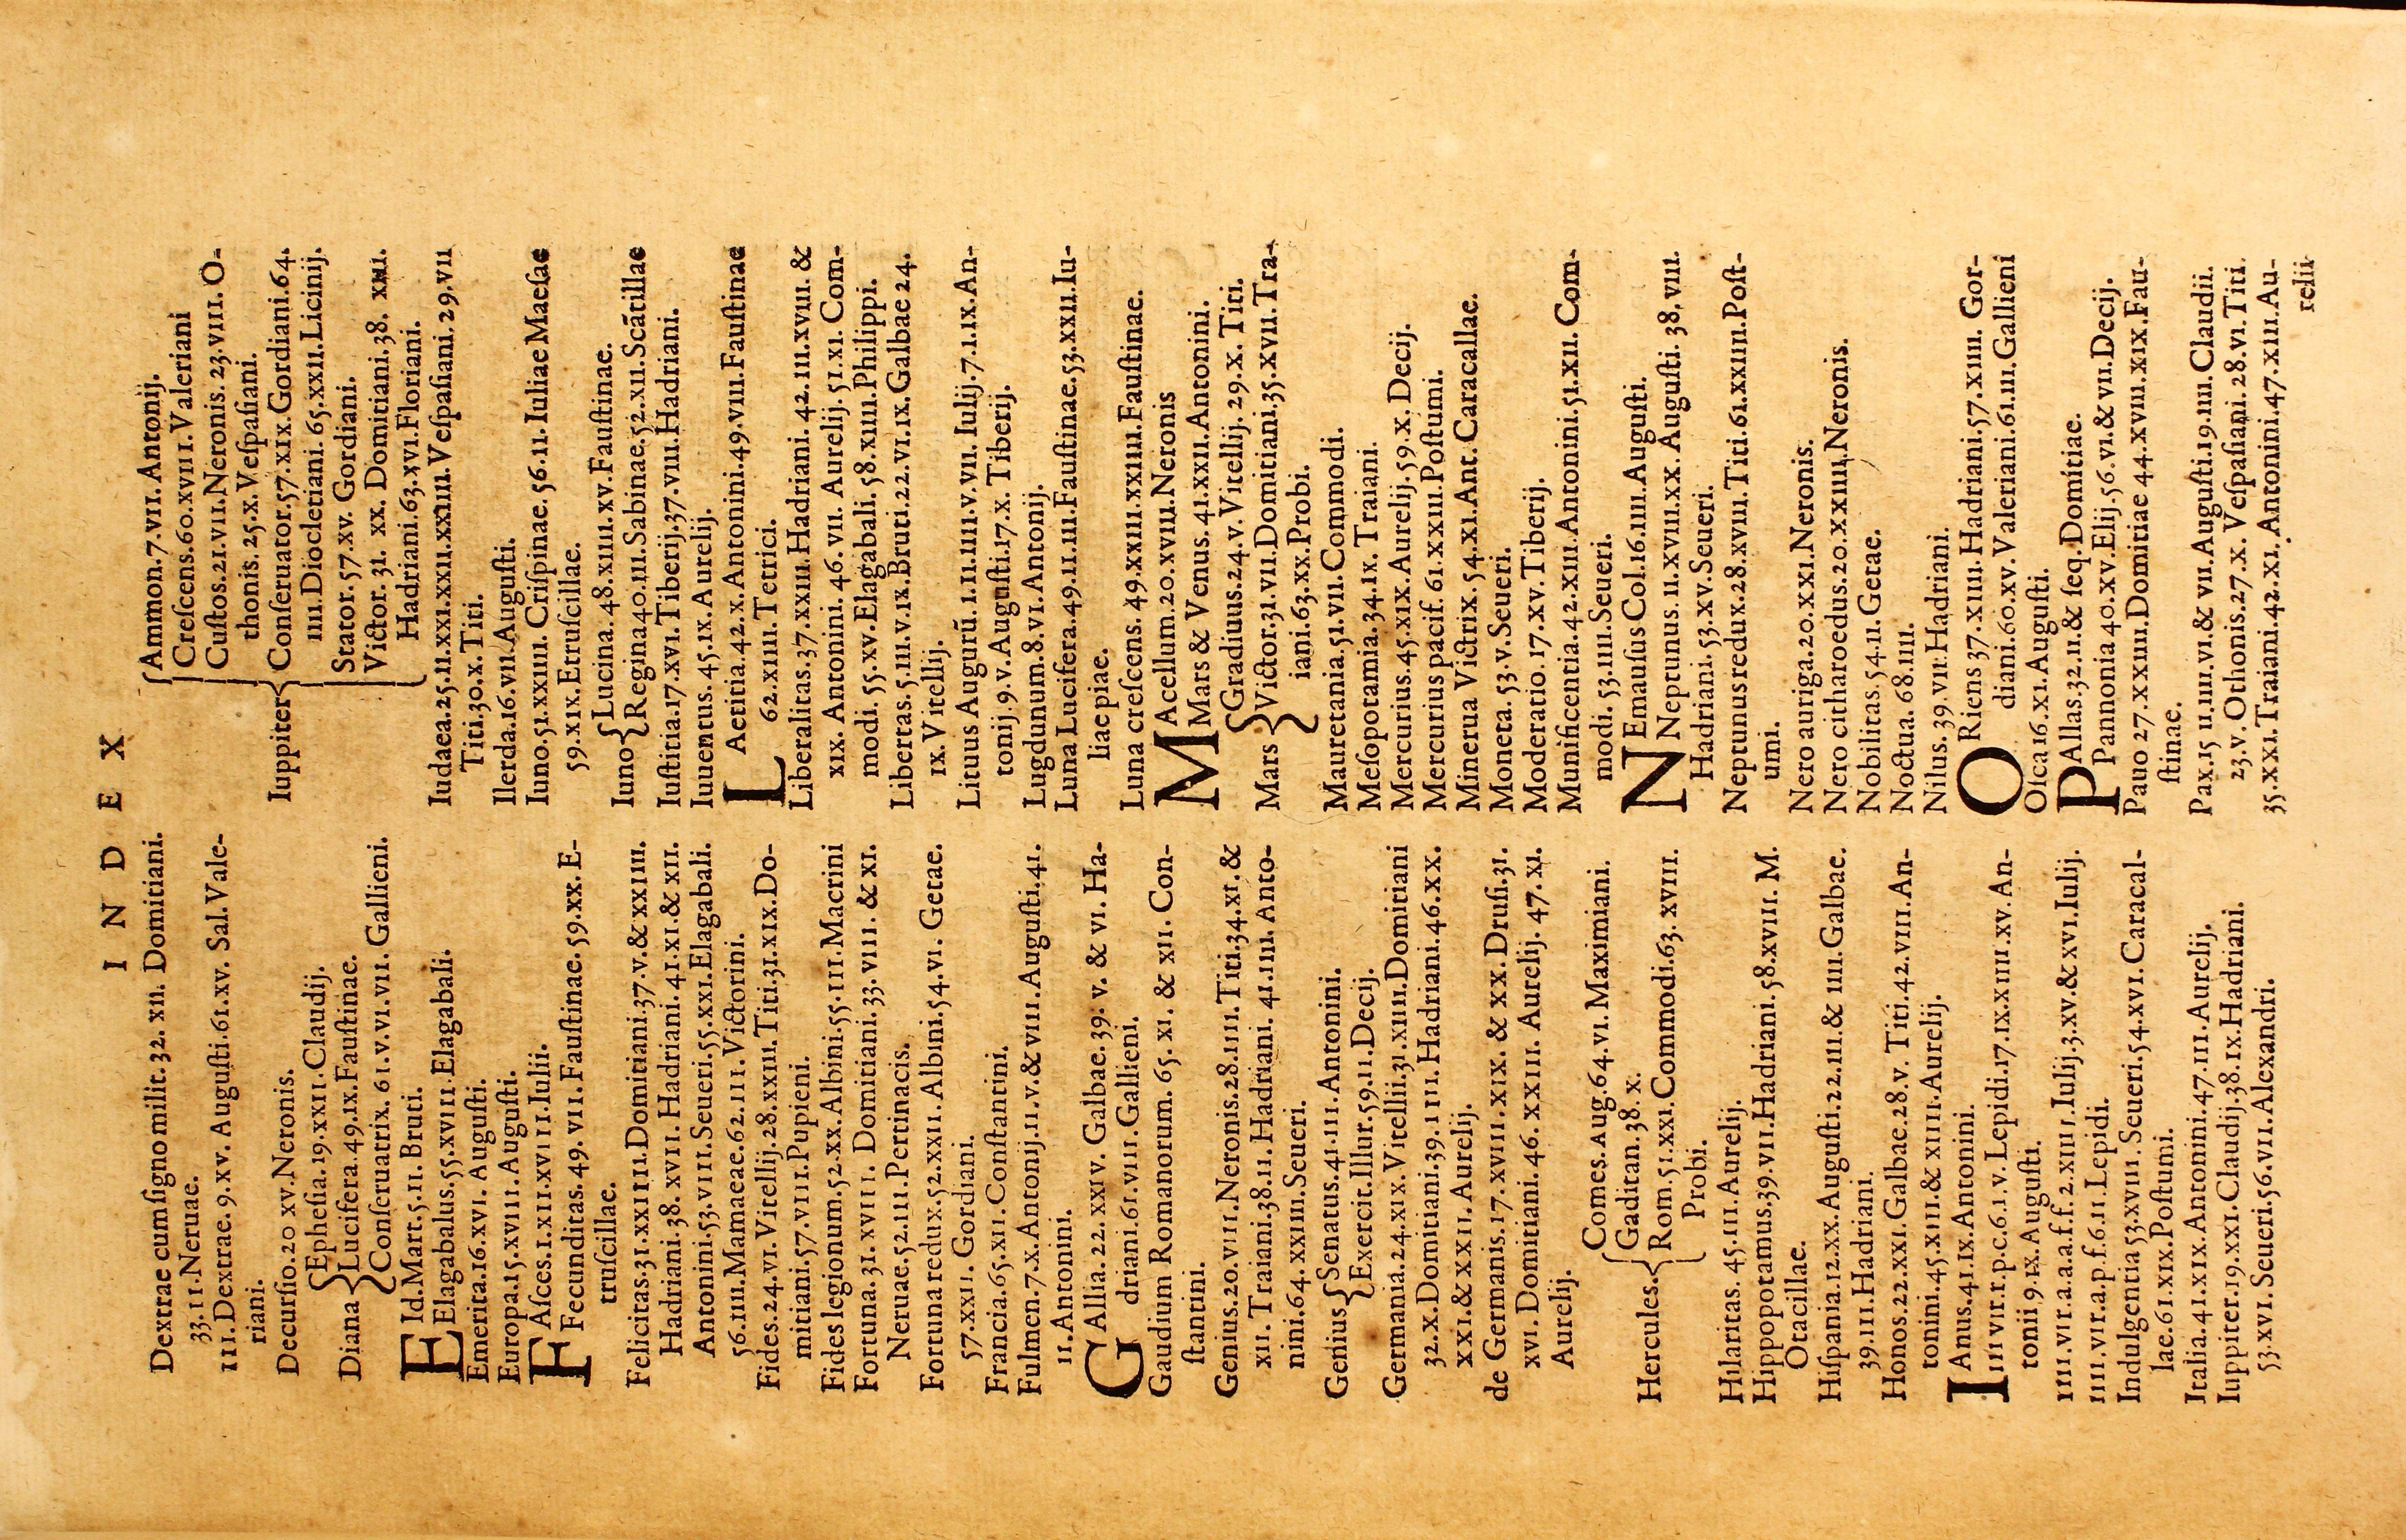 I N D E X
Dextrae cum ſigno milit. 32. XII. Domitiani.
33. II. Neruae.
III. Dextrae. 9. XV. Auguſti. 61. XV. Sal. Vale-
riani.
Decurſio. 20 XV. Neronis.
Epheſia. 19. XXII. Claudij.
Diana { Lucifera. 49. IX. Fauſtinae.
Conſeruatrix. 61. V. VI. VII. Gallieni.
EId. Mart. 5. II. Bruti.
Elagabalus. 55. XVIII Elagabali.
Emerita. 16. XVI. Auguſti.
Europa. 15. XVIII. Auguſti.
FAſces. I. XII. XVIII. Iulii.
Fecunditas. 49. VII. Fauſtinae. 59. XX. E-
truſcillae.
Felicitas. 31. XXIII. Domitiani. 37. V. & XXIII.
Hadriani. 38. XVII. Hadriani. 41. XI. & XII.
Antonini. 53. VIII. Seueri. 55. XXI. Elagabali.
56. IIII. Mamaeae. 62. III. Victorini.
Fides. 24. VI. Vitellij. 28. XXIII. Titi. 31. XIX. Do-
mitiani. 57. VIII. Pupieni.
Fides legionum. 52. XX. Albini. 55. III. Macrini
Fortuna. 31. XVIII. Domitiani. 33. VIII. & XI.
Neruae. 52. III. Pertinacis.
Fortuna redux. 52. XXII. Albini. 54. VI. Getae.
57. XXII. Gordiani.
Francia. 65. XII. Conſtantini.
Fulmen. 7. X. Antonij. II. V. & VIII. Auguſti. 41.
II. Antonini.
GAllia. 22. XXIV. Galbae. 39. V. & VI. Ha-
driani. 61. VIII. Gallieni.
Gaudium Romanorum. 65. XI. & XII. Con-
ſtantini.
Genius. 20. VII. Neronis. 28. IIII. Titi. 34. XI. &
XII. Traiani. 38. II. Hadriani. 41. IIII. Anto-
nini. 64. XXIII. Seueri.
Genius { Senatus. 41. III. Antonini.
Exercit. Illur. 59. II. Decij.
Germania. 24. XIX. Vitellii. 31. XIIII. Domitiani
32. X. Domitiani. 39. III. Hadriani. 46. XX.
XXI. & XXII. Aurelij.
de Germanis. 17. XVIII. XIX. & XX. Druſi. 31.
XVI. Domitiani. 46. XXIII. Aurelij. 47. XI.
Aurelij.
Comes. Aug. 64. VI. Maximiani.
Hercules. { Gaditan. 38. X.
Rom. 51. XXI. Commodi. 63. XVIII.
Probi.
Hilaritas. 45. III. Aurelij.
Hippopotamus. 39. VII. Hadriani. 58. XVIII. M.
Otacillae.
Hiſpania. 12. XX. Auguſti. 22. III. & IIII. Galbae.
39. III. Hadriani.
Honos. 22. XXI. Galbae. 28. V. Titi. 42. VIII. An-
tonini. 45. XIII. & XIIII. Aurelij.
IAnus. 41. IX. Antonini.
III vir. r. p. c. 6. I. V. Lepidi. 17. IX. XIIII. XV. An-
tonii 9. IX. Auguſti.
IIII. vir. a. a. f. f. 2. XIIII. Iulij. 3. XV. & XVI. Iulij.
IIII. vir. a. p. f. 6. II. Lepidi.
Indulgentia 53. XVIII. Seueri. 54. XVI. Caracal-
lae. 61. XIX. Poſtumi.
Italia. 41. XIX. Antonini. 47. III. Aurelij.
Iuppiter. 19. XXI. Claudij. 38. IX. Hadriani.
53. XVI. Seueri. 56. VII. Alexandri.
Ammon. 7. VII. Antonij.
Creſcens. 60. XVIII. Valeriani
Cuſtos. 21. VII. Neronis. 23. VIII. O-
thonis. 25. X. Veſpaſiani.
Iuppiter { Conſeruator. 57. XIX. Gordiani. 64.
IIII. Diocletiani. 65. XXII. Licinij.
Stator. 57. XV. Gordiani.
Victor. 31. XX. Domitiani. 38. XIII.
Hadriani. 63. XVI. Floriani.
Iudaea. 25. II. XXI. XXII. XXIII. Veſpaſiani. 29. VII
Titi. 30. X. Titi.
Ilerda. 16. VII. Auguſti.
Iuno. 51. XXIIII. Criſpinae. 56. II. Iuliae Maeſae
59. XIX. Etruſcillae.
Iuno { Lucina. 48. XIIII. XV. Fauſtinae.
Regina 40. III. Sabinae. 52. XII. Scātillae
Iuſtitia. 17. XVI. Tiberij. 37. VIII. Hadriani.
Iuuentus. 45. IX. Aurelij.
LAetitia. 42. X. Antonini. 49. VIII. Fauſtinae
62. XIIII. Tetrici.
Liberalitas. 37. XXIII. Hadriani. 42. III. XVIII. &
XIX. Antonini. 46. VII. Aurelij. 51. XI. Com-
modi. 55. XV. Elagabali. 58. XIIII. Philippi.
Libertas. 5. III. V. IX. Bruti. 22. VI. IX. Galbae 24.
IX. Vitellij.
Lituus Augurū. I. II. IIII. V. VII. Iulij. 7. I. IX. An-
tonij. 9. V. Auguſti. 17. X. Tiberij.
Lugdunum. 8. VI. Antonij.
Luna Lucifera. 49. II. III. Fauſtinae. 53. XXII. Iu-
liae piae.
Luna creſcens. 49. XXIII. XXIIII. Fauſtinae.
MAcellum. 20. XVIII. Neronis
Mars & Venus. 41. XXII. Antonini.
Gradiuus. 24. V. Vitellij. 29. X. Titi.
Mars { Victor. 31. VII. Domitiani. 35. XVII. Tra-
iani. 63. XX. Probi.
Mauretania. 51. VII. Commodi.
Meſopotamia. 34. IX. Traiani.
Mercurius. 45. XIX. Aurelij. 59. X. Decij.
Mercurius pacif. 61. XXIII. Poſtumi.
Minerua Victrix. 54. XI. Ant. Caracallae.
Moneta. 53. V. Seueri.
Moderatio. 17. XV. Tiberij.
Munificentia. 42. XIII. Antonini. 51. XII. Com-
modi. 53. IIII. Seueri.
NEmauſus Col. 16. IIII. Auguſti.
Neptunus. II. XVIII. XX. Auguſti. 38. VIII.
Hadriani. 53. XV. Seueri.
Neptunus redux. 28. XVIII. Titi. 61. XXIIII. Poſt-
umi.
Nero auriga. 20. XXI. Neronis.
Nero citharoedus. 20. XXIII. Neronis.
Nobilitas. 54. II. Getae.
Noctua. 68. IIII.
Nilus. 39. VII. Hadriani.
ORiens 37. XIIII. Hadriani. 57. XIIII. Gor-
diani. 60. XV. Valeriani. 61. III. Gallieni
Oſca 16. XI. Auguſti.
PAllas. 32. II. & ſeq. Domitiae.
Pannonia 40. XV. Elij. 56. VI. & VII. Decij.
Pauo 27. XXIIII. Domitiae 44. XVIII. XIX. Fau-
ſtinae.
Pax. 15 II. IIII. VI. & VII. Auguſti. 19. IIII. Claudii.
23. V. Othonis. 27. X. Veſpaſiani. 28. VI. Titi.
35. XXI. Traiani. 42. XI. Antonini. 47. XIII. Au-
relii